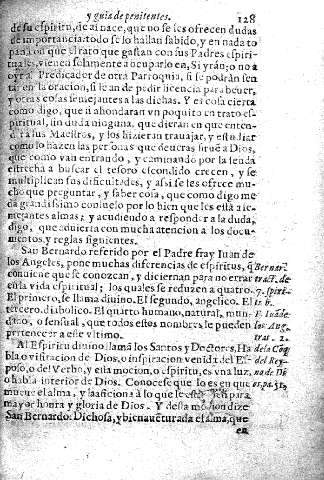 y guia de penitentes. 128
de su espiritu, de ai nace, que no se les ofrecen dudas
de importancia: todo se lo hallan sabido, y en nada to
pan
que el rato que gastan con sus Padres espiri-
tuales, vienen solmente a ocuparlo en, Si yran; o no a
oyr a Predicador de otra Parroquia, si se podràn sen
tar en la oracion, si le an de pedir licencia para beuer,
y otras cosas semejantes a las dichas. Y es cosa cierta
como digo, que si ahondaran vn poquito en trato es-
piritual, sin duda ninguna, que dieran en que enten-
der a sus Maestros, y los hizieran trauajar, y estudiar
como lo hazen las personas que deueras siruē a Dios,
que como van entrando, y caminando por la senda
estrecha a buscar el tesoro escondido crecen, y se
multiplican sus dificultades, y assi se les ofrece mu-
cho que preguntar, y saber cosa, que como digo me
da grandissimo consuelo por lo bien que les està a se-
mejantes almas; y acudiendo a responder a la duda,
digo, que aduierta con mucha atencion a los docu-
mentos, y reglas siguientes.
San Bernardo referido por el Padre fray Iuan de
los Angeles, pone muchas diferencias de espiritus, q̃ Bernar.
conuiene que se conozcan, y diciernan para no errar tract. de
en la vida espiritual; los quales se reduzen a quatro. 7. spiri-
El primero, se llama diuino. El segundo, angelico. El
tercero, diabolico. El quarto humano, natural, mun-
dano, o sensual, que todos estos nombres le pueden los Ang.
pertenecer a este vltimo. trat. 2.
Al Espiritu diuino llamã los Santos y Doctores, Ha
bla o visitacion de Dios, o inspiracion venida del Es-
poso, o del Verbo, y esta mocion, o espiritu, es vna luz,
o habla interior de Dios. Conocese que lo es en que
mueue el alma, y la aficiona a lo que es para
mayor honra y gloria de Dios. Y desta mocion dize
San Bernardo: Dichosa, y bienauēturada el alma, que
en